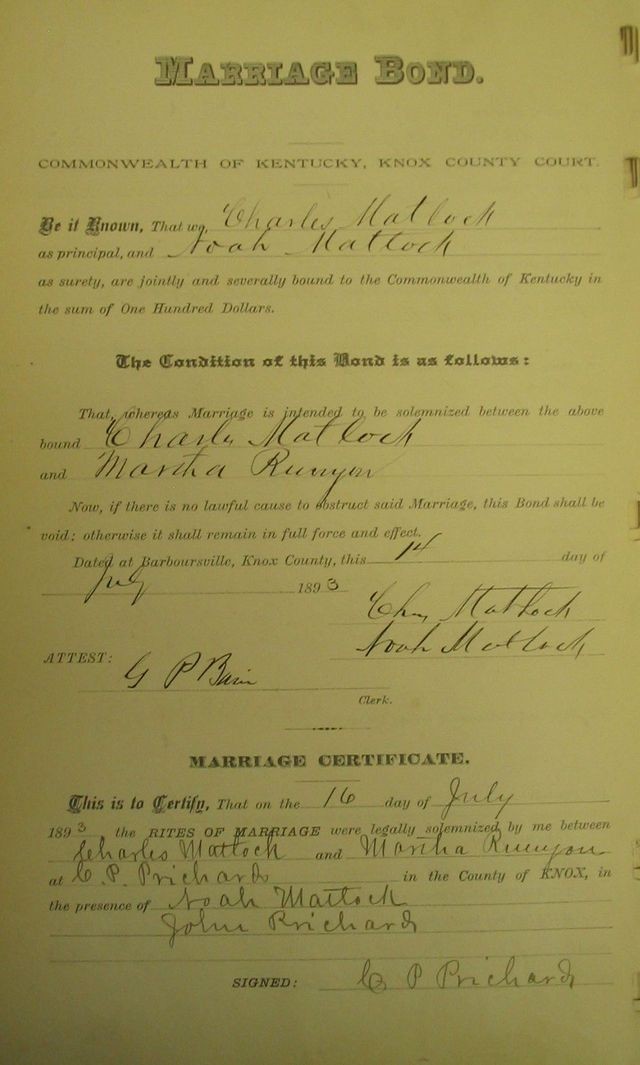 MARRIAGE BOND.
COMMONWEALTH OF KENTUCKY, KNOX COUNTY COURT.
Be it Known, That we, Charles Matlock
as principal, and Noah Matlock
as surety, are jointly and severally bound to the Commonwealth of Kentucky in
the sum of One Hundred Dollars.
The Condition of this Bond is as follows:
That, whereas Marriage is intended to be solemnized between the above
bound Charles Matlock
and Martha Runyon
Now, if there is no lawful cause to obstruct said Marriage, this Bond shall be
void; otherwise it shall remain in full force and effect.
Dated at Barboursville, Knox County, this 14 day of
July 1893
Chas Matlock
Noah Matlock
ATTEST:
G P Bain
Clerk.
MARRIAGE CERTIFICATE.
This is to Certify, That on the 16 day of July
1893 the RITES OF MARRIAGE were legally solemnized by me between
Charles Matlock and Martha Runyon
at C. P. Prichards in the County of KNOX, in
the presence of Noah Matlock
John Prichard
SIGNED: C P Prichard